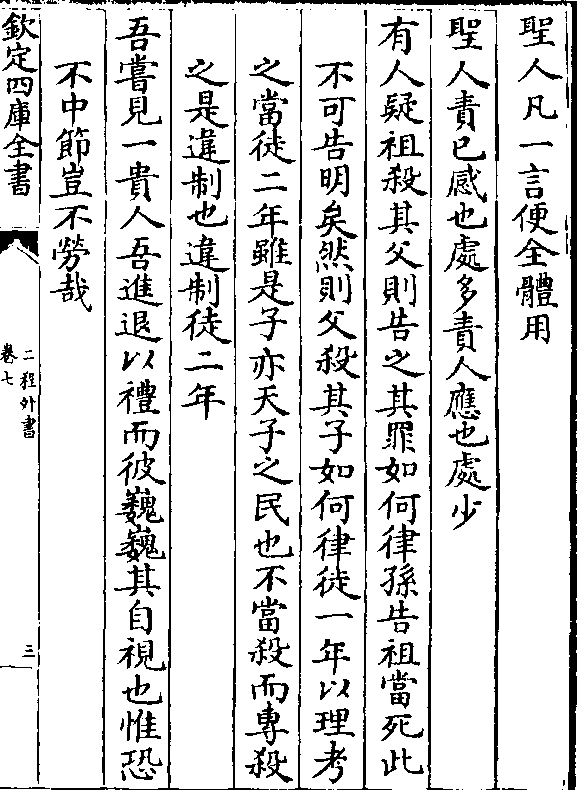 聖人凡一言便全體用
聖人責已感也處多責人應也處少
有人疑祖殺其父則告之其罪如何律孫告祖當死此
不可告明矣然則父殺其子如何律徒一年以理考
之當徒二年雖是子亦天子之民也不當殺而專殺
之是違制也違制徒二年
吾嘗見一貴人吾進退以禮而彼巍巍其自視也惟恐
不中節豈不勞哉
欽定四庫全書
二程外書
卷七
三